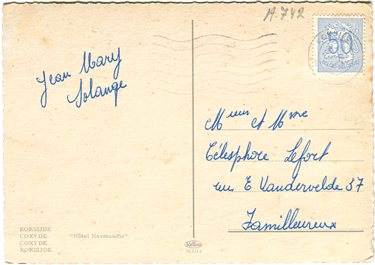 A.742
50
Jean Mary
Solange
Mr et Mme
Télesphore Lefort
rue E Vandervelde 37
Familleureux
KOKSIJDE
COXYDE "Hôtel Normandie"
COXYDE
KOKSIJDE